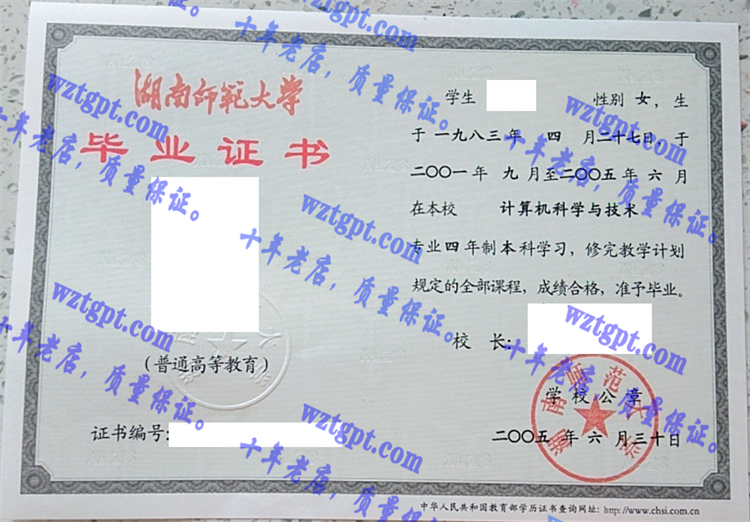 湖南师范大学
毕业证书
(普通高等教育)
证书编号:
学生 性别 女，生
于一九八三年 四 月二十七日，于
二〇〇一年 九 月至二〇〇五年 六 月
在本校 计算机科学与技术
专业四年制本科学习，修完教学计划
规定的全部课程，成绩合格，准予毕业。
校 长:
学校公章
湖南师范大学
二〇〇五 年 六 月三十日
中华人民共和国教育部学历证书查询网址: http://www.chsi.com.cn
wztgpt.com
十年老店，质量保证。
wztgpt.com
十年老店，质量保证。
wztgpt.com
十年老店，质量保证。
wztgpt.com
十年老店，质量保证。
wztgpt.com
十年老店，质量保证。
wztgpt.com
十年老店，质量保证。